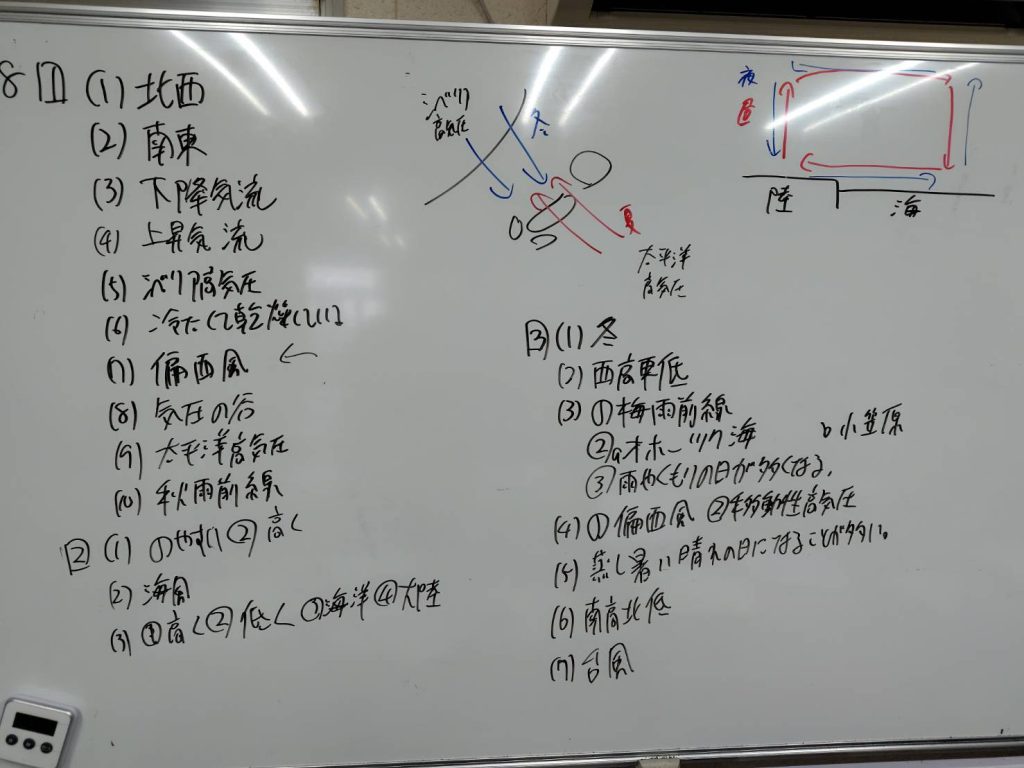 8 1 (1) 北西
(2) 南東
(3) 下降気流
(4) 上昇気流
(5) シベリア高気圧
(6) 冷たくて乾燥している
(7) 偏西風 ←
(8) 気圧の谷
(9) 太平洋高気圧
(10) 秋雨前線
2 (1) ①やすい ② 高く
(2) 海風
(3) ① 高く ② 低く ③ 海洋 ④ 大陸
シベリア
高気圧
冬
夏
太平洋
高気圧
夜
昼
陸 海
3 (1) 冬
(2) 西高東低
(3) ① 梅雨前線
② a オホーツク海 b 小笠原
③ 雨やくもりの日が多くなる。
(4) ① 偏西風 ② 移動性高気圧
(5) 蒸し暑い晴れの日になることが多い。
(6) 南高北低
(7) 台風